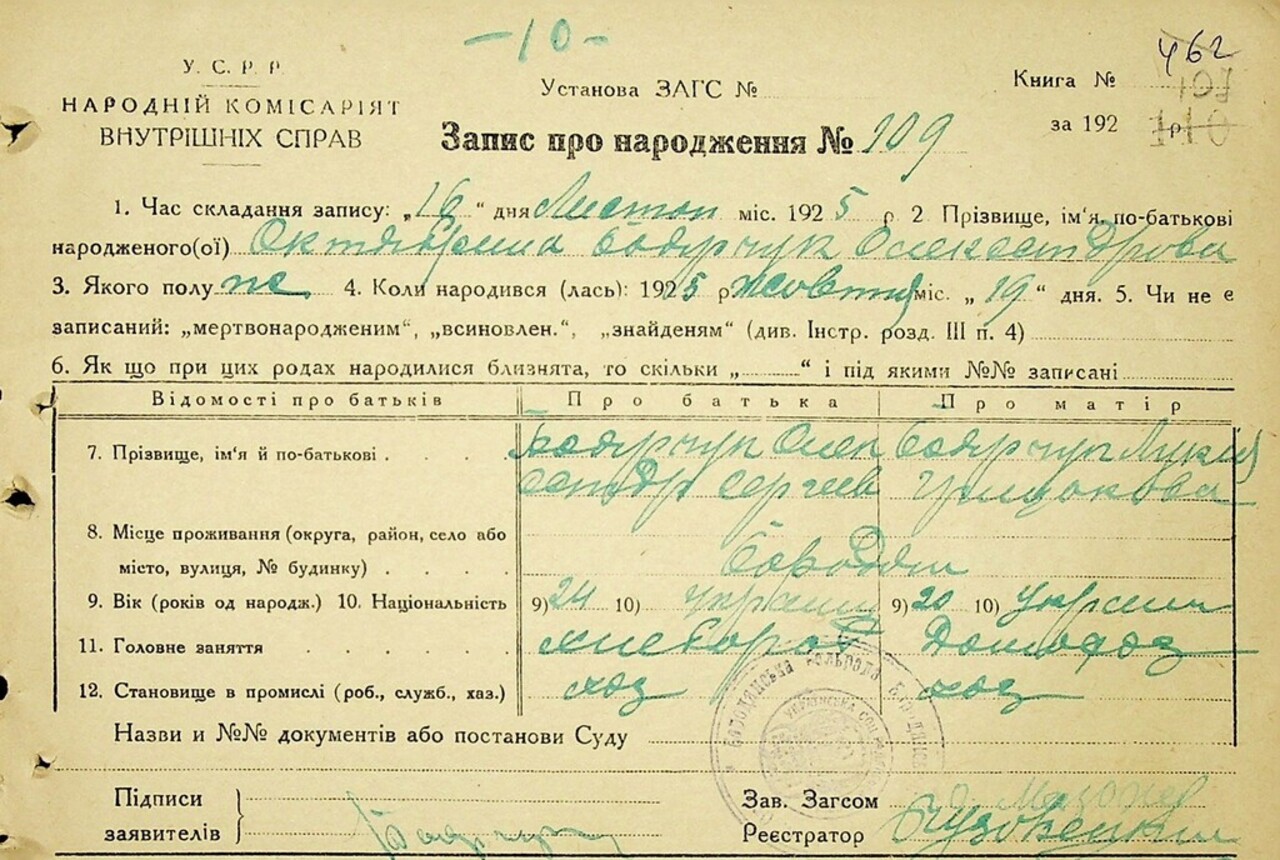 -10-
462
У. С. Р. Р.
НАРОДНІЙ КОМІСАРІЯТ
ВНУТРІШНІХ СПРАВ
Установа ЗАГС №
Книга № 107
за 192 р. 110
Запис про народження № 109
1. Час складання запису: „16“ дня Листоп міс. 1925 р 2 Прізвище, ім'я, по-батькові
народженого(ої) Октябрина Бодурчук Олександрова
3. Якого полу же 4. Коли народився (лась): 1925 р. жовтня міс. „19“ дня. 5. Чи не є
записаний: „мертвонародженим“, „всиновлен.“, „знайденям“ (див. Інстр. розд. III п. 4)
6. Як що при цих родах народилися близнята, то скільки „ “ і під якими №№ записані
Відомості про батьків Про батька Про матір
7. Прізвище, ім'я й по-батькові . . . Бодурчук Олек Бодурчук Лукія
сандр Сергеев
8. Місце проживання (округа, район, село або
місто, вулиця, № будинку) . . . .
9. Вік (років од народж.) 10. Національність 9) 24 10) україн 9) 20 10) україн
11. Головне заняття . . . . . . хлебороб Домохоз
12. Становище в промислі (роб., служб., хаз.) хоз хоз
Назви и №№ документів або постанови Суду
Підписи
заявителів
Зав. Загсом
Реєстратор